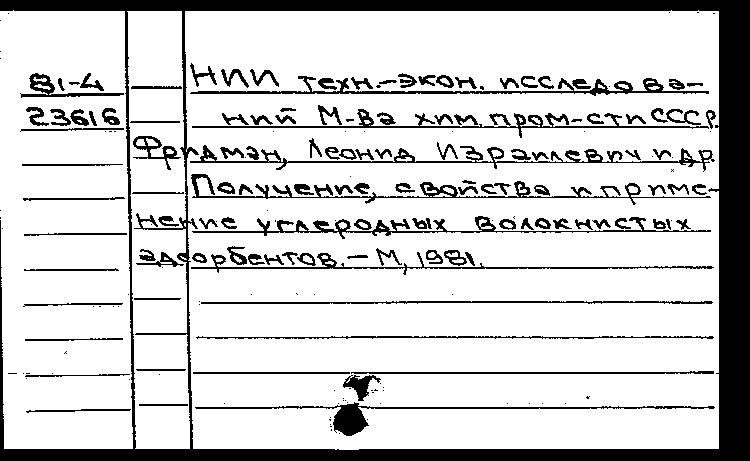 81-4 НИИ техн.-экон. исследова-
23616 ний М-ва хим. пром-сти СССР.
Фридман, Леонид Израилевич и др.
Получение, свойства и приме-
нение углеродных волокнистых
адсорбентов. - М, 1981.